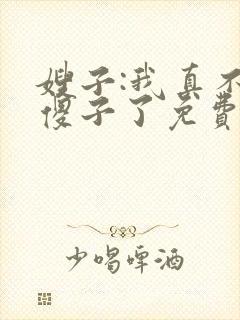 嫂子:我真不
傻子了免费
少喝啤酒